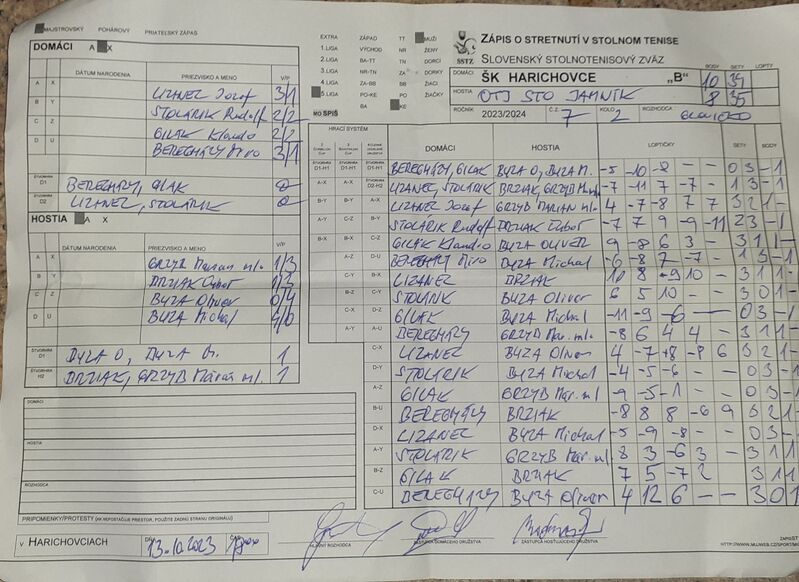 MAJSTROVSKÝ POHÁROVÝ PRIATEĽSKÝ ZÁPAS
DOMÁCI A X
DÁTUM NARODENIA PRIEZVISKO A MENO V/P
A X LIZANEC Jozef 3/1
B Y STOLÁRIK Rudolf 2/2
C Z GILAK Klaudio 2/2
D U BEREGHÁZY Miro 3/1
ŠTVORHRA D1 BEREGHÁZY, GILAK 0
ŠTVORHRA D2 LIZANEC, STOLÁRIK 0
HOSTIA A X
DÁTUM NARODENIA PRIEZVISKO A MENO V/P
A X GRZYB Marian ml. 1/3
B Y BRZIAK Ľubor 1/3
C Z BYZA Oliver 0/4
D U BYZA Michal 4/0
BYZA O, BYZA M. 1
ŠTVORHRA H2 BRZIAK, GRZYB Marián ml. 1
DOMÁCI
HOSTIA
ROZHODCA
PRIPOMIENKY/PROTESTY (AK NEPOSTAČUJE PRIESTOR, POUŽITE ZADNÚ STRANU ORIGINÁLU)
V HARICHOVCIACH DŇA 13.10.2023 ČAS
EXTRA ZÁPAD TT MUŽI
1. LIGA VÝCHOD NR ŽENY
2. LIGA BA-TT TN DORCI
3. LIGA NR-TN ZA DORKY
4. LIGA ZA-BB BB ŽIACI
5. LIGA KE-PO PO ŽIAČKY
BA KE
MO SPIŠ
SSTZ
ZÁPIS O STRETNUTÍ V STOLNOM TENISE
SLOVENSKÝ STOLNOTENISOVÝ ZVÄZ
BODY SETY LOPTY
DOMÁCI ŠK HARICHOVCE „B“ 10 39
HOSTIA OTJ STO JAMNÍK 8 35
ROČNÍK 2023/2024 Č.Z. 7 KOLO 2 ROZHODCA
HRACÍ SYSTÉM DOMÁCI HOSTIA LOPTIČKY SETY BODY
BEREGHÁZY, GILAK BYZA O, BYZA M. -5 -10 -8 - - 0 3 - 1
LIZANEC, STOLÁRIK BRZIAK, GRZYB Mar. -7 -11 7 -7 - 1 3 - 1
LIZANEC Jozef GRZYB MARIAN ml. 4 -7 -8 7 7 3 2 1 -
STOLÁRIK Rudolf BRZIAK Ľubor -7 7 9 -9 -11 2 3 - 1
GILAK Klaudio BYZA OLIVER 9 -8 6 3 - 3 1 1 -
BEREGHÁZY Miro BYZA Michal -6 -8 7 -7 - 1 3 - 1
LIZANEC BRZIAK 10 8 -9 10 - 3 1 1 -
STOLÁRIK BYZA Oliver 6 5 10 - - 3 0 1 -
GILAK BYZA Michal -11 -9 -6 - - 0 3 - 1
BEREGHÁZY GRZYB Mar. ml. -8 6 4 4 - 3 1 1 -
LIZANEC BYZA Oliver 4 -7 +8 -8 6 3 2 1 -
STOLÁRIK BYZA Michal -4 -5 -6 - - 0 3 - 1
GILAK GRZYB Mar. ml -9 -5 -1 - - 0 3 - 1
BEREGHÁZY BRZIAK -8 8 8 -6 9 3 2 1 -
LIZANEC BYZA Michal -5 -9 -8 - - 0 3 - 1
STOLÁRIK GRZYB Mar. ml -8 3 -6 3 - 3 1 1
GILAK BRZIAK 7 5 -7 2 3 1 1
BEREGHÁZY BYZA Oliver 4 12 6 - - 3 0 1
HLAVNÝ ROZHODCA ZÁSTUPCA DOMÁCEHO DRUŽSTVA ZÁSTUPCA HOSŤUJÚCEHO DRUŽSTVA